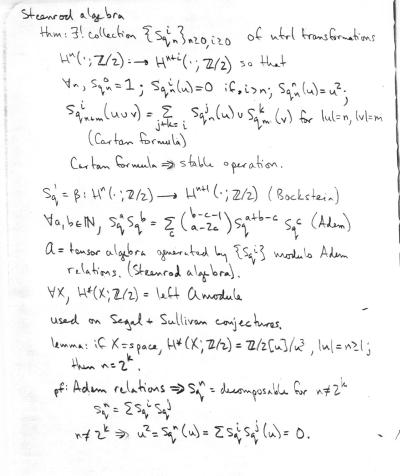 Steenrod algebra
thm: ∃! collection {Sq^i_n}_{n≥0, i≥0} of ntrl transformations
H^n(·; Z/2) → H^{n+i}(·; Z/2) so that
∀n, Sq^0_n = 1; Sq^i_n(u)=0 if i>n; Sq^n_n(u)=u²;
Sq^i_{n+m}(u∪v) = Σ_{j+k=i} Sq^j_n(u) ∪ Sq^k_m(v) for |u|=n, |v|=m
(Cartan formula)
Cartan formula ⇒ stable operation.
Sq^1 = β: H^n(·; Z/2) → H^{n+1}(·; Z/2) (Bockstein)
∀a,b∈ℕ, Sq^a Sq^b = Σ_c (b-c-1 / a-2c) Sq^{a+b-c} Sq^c (Adem)
a = tensor algebra generated by {Sq^i} modulo Adem
relations. (Steenrod algebra).
∀X, H*(X; Z/2) = left a module
used on Segal + Sullivan conjectures.
lemma: if X=space, H*(X; Z/2) = Z/2[u]/u³, |u|=n≥1;
then n=2^k.
pf: Adem relations ⇒ Sq^n = decomposable for n≠2^k
Sq^n = ΣSq^i Sq^j
n≠2^k ⇒ u² = Sq^n(u) = ΣSq^i Sq^j(u) = 0.